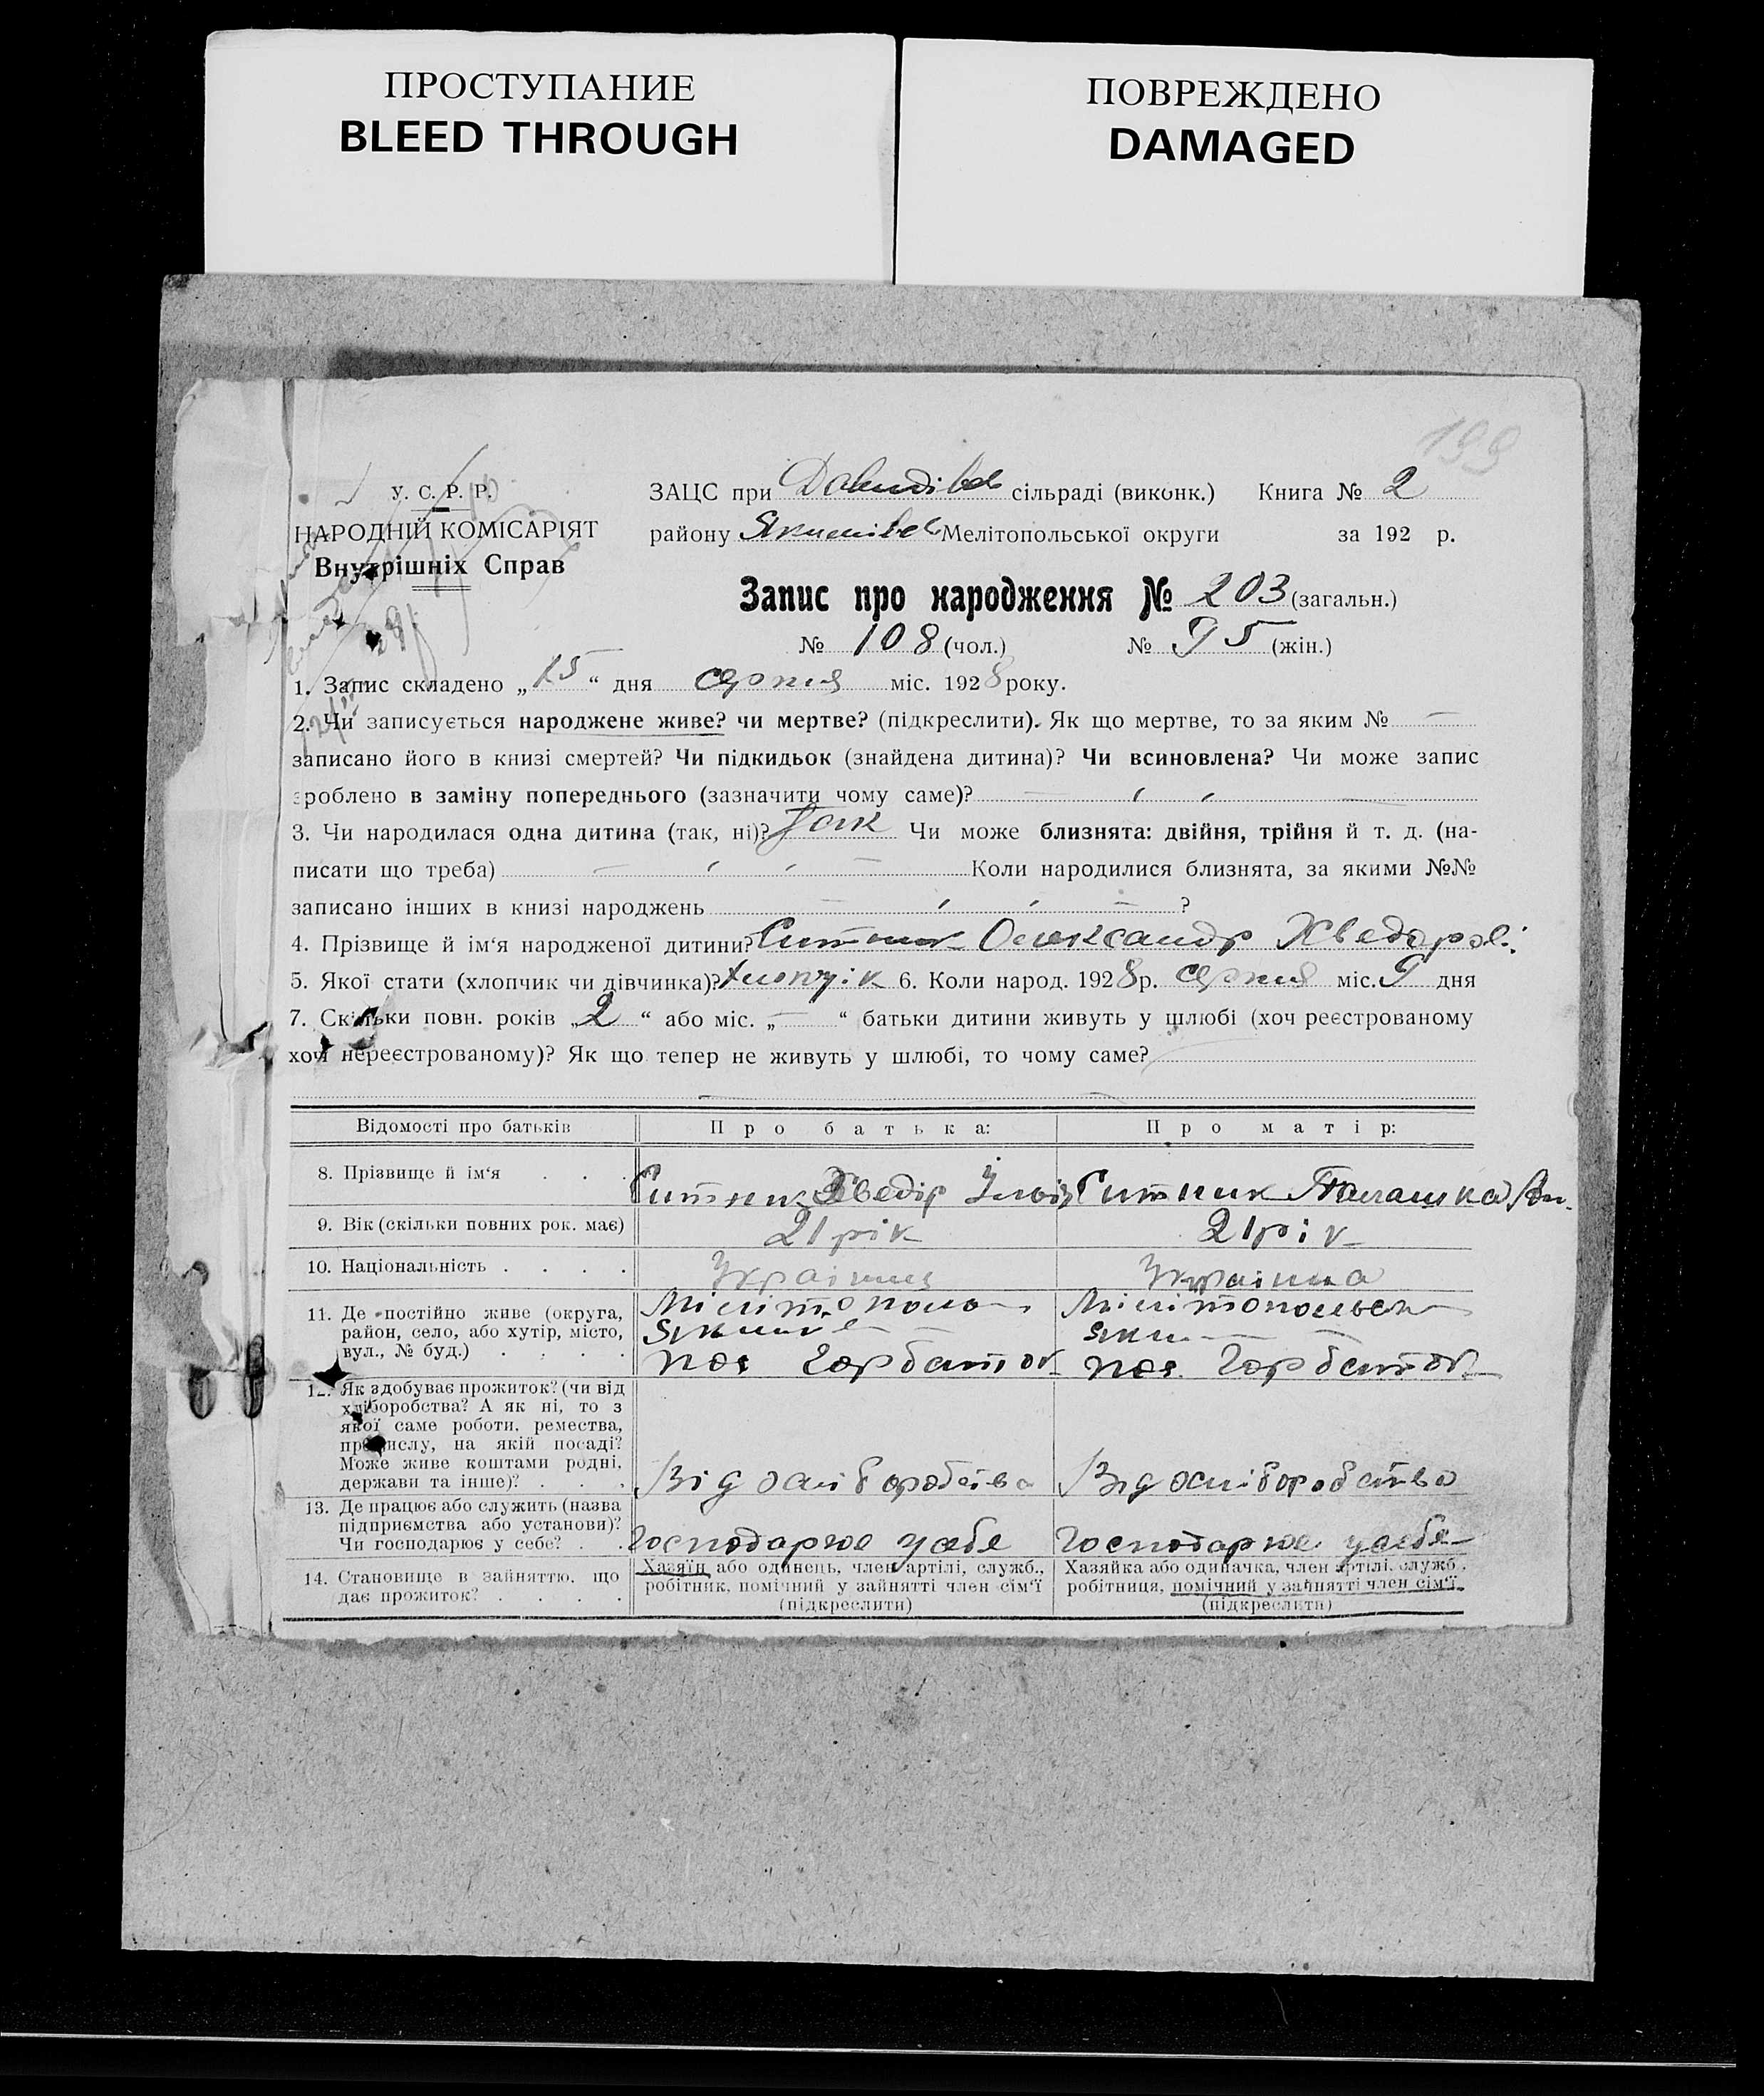 ПРОСТУПАНИЕ
BLEED THROUGH
ПОВРЕЖДЕНО
DAMAGED
199
У. С. Р. Р.
НАРОДНІЙ КОМІСАРІЯТ
Внутрішніх Справ
ЗАЦС при Давидівс сільраді (виконк.) Книга № 2
району Якимівс Мелітопольської округи за 192 р.
Запис про народження № 203 (загальн.)
№ 108 (чол.) № 95 (жін.)
1. Запис складено „15“ дня серпня міс. 1928 року.
2. Чи записується народжене живе? чи мертве? (підкреслити). Як що мертве, то за яким № —
записано його в книзі смертей? Чи підкидьок (знайдена дитина)? Чи всиновлена? Чи може запис
зроблено в заміну попереднього (зазначити чому саме)?
3. Чи народилася одна дитина (так, ні)? Так Чи може близнята: двійня, трійня й т. д. (на-
писати що треба) Коли народилися близнята, за якими №№
записано інших в книзі народжень ?
4. Прізвище й ім‘я народженої дитини? Ситник Олександр Хведоров.
5. Якої стати (хлопчик чи дівчинка)? хлопчік 6. Коли народ. 1928 р. серпня міс. 9 дня
7. Скільки повн. років „2“ або міс. „—“ батьки дитини живуть у шлюбі (хоч реєстрованому
хоч нереєстрованому)? Як що тепер не живуть у шлюбі, то чому саме?
Відомості про батьків Про батька: Про матір:
8. Прізвище й ім‘я . . . Ситник Хведір Ілвіч Ситник Палашка
9. Вік (скільки повних рок. має) 21 рік 21 рік
10. Національність . . . . Українец Украінка
11. Де постійно живе (округа,
район, село, або хутір, місто,
вул., № буд.) . . . .
Мілітополь
Якимів
пос Горбатов
Мілітопольск
Яким
пос. Горбатов
12. Як здобуває прожиток? (чи від
хліборобства? А як ні, то з
якої саме роботи, ремества,
промислу, на якій посаді?
Може живе коштами родні,
держави та інше)? . . .
Від хліборобства Від хліборобства
13. Де працює або служить (назва
підприємства або установи)?
Чи господарює у себе? . .
Господарює у себе Господарює у себе
14. Становище в зайняттю, що
дає прожиток? . . . .
Хазяїн або одинець, член артілі, служб.,
робітник, помічний у зайнятті член сім‘ї
(підкреслити)
Хазяйка або одиначка, член артілі, служб.,
робітниця, помічний у зайнятті член сім‘ї
(підкреслити)